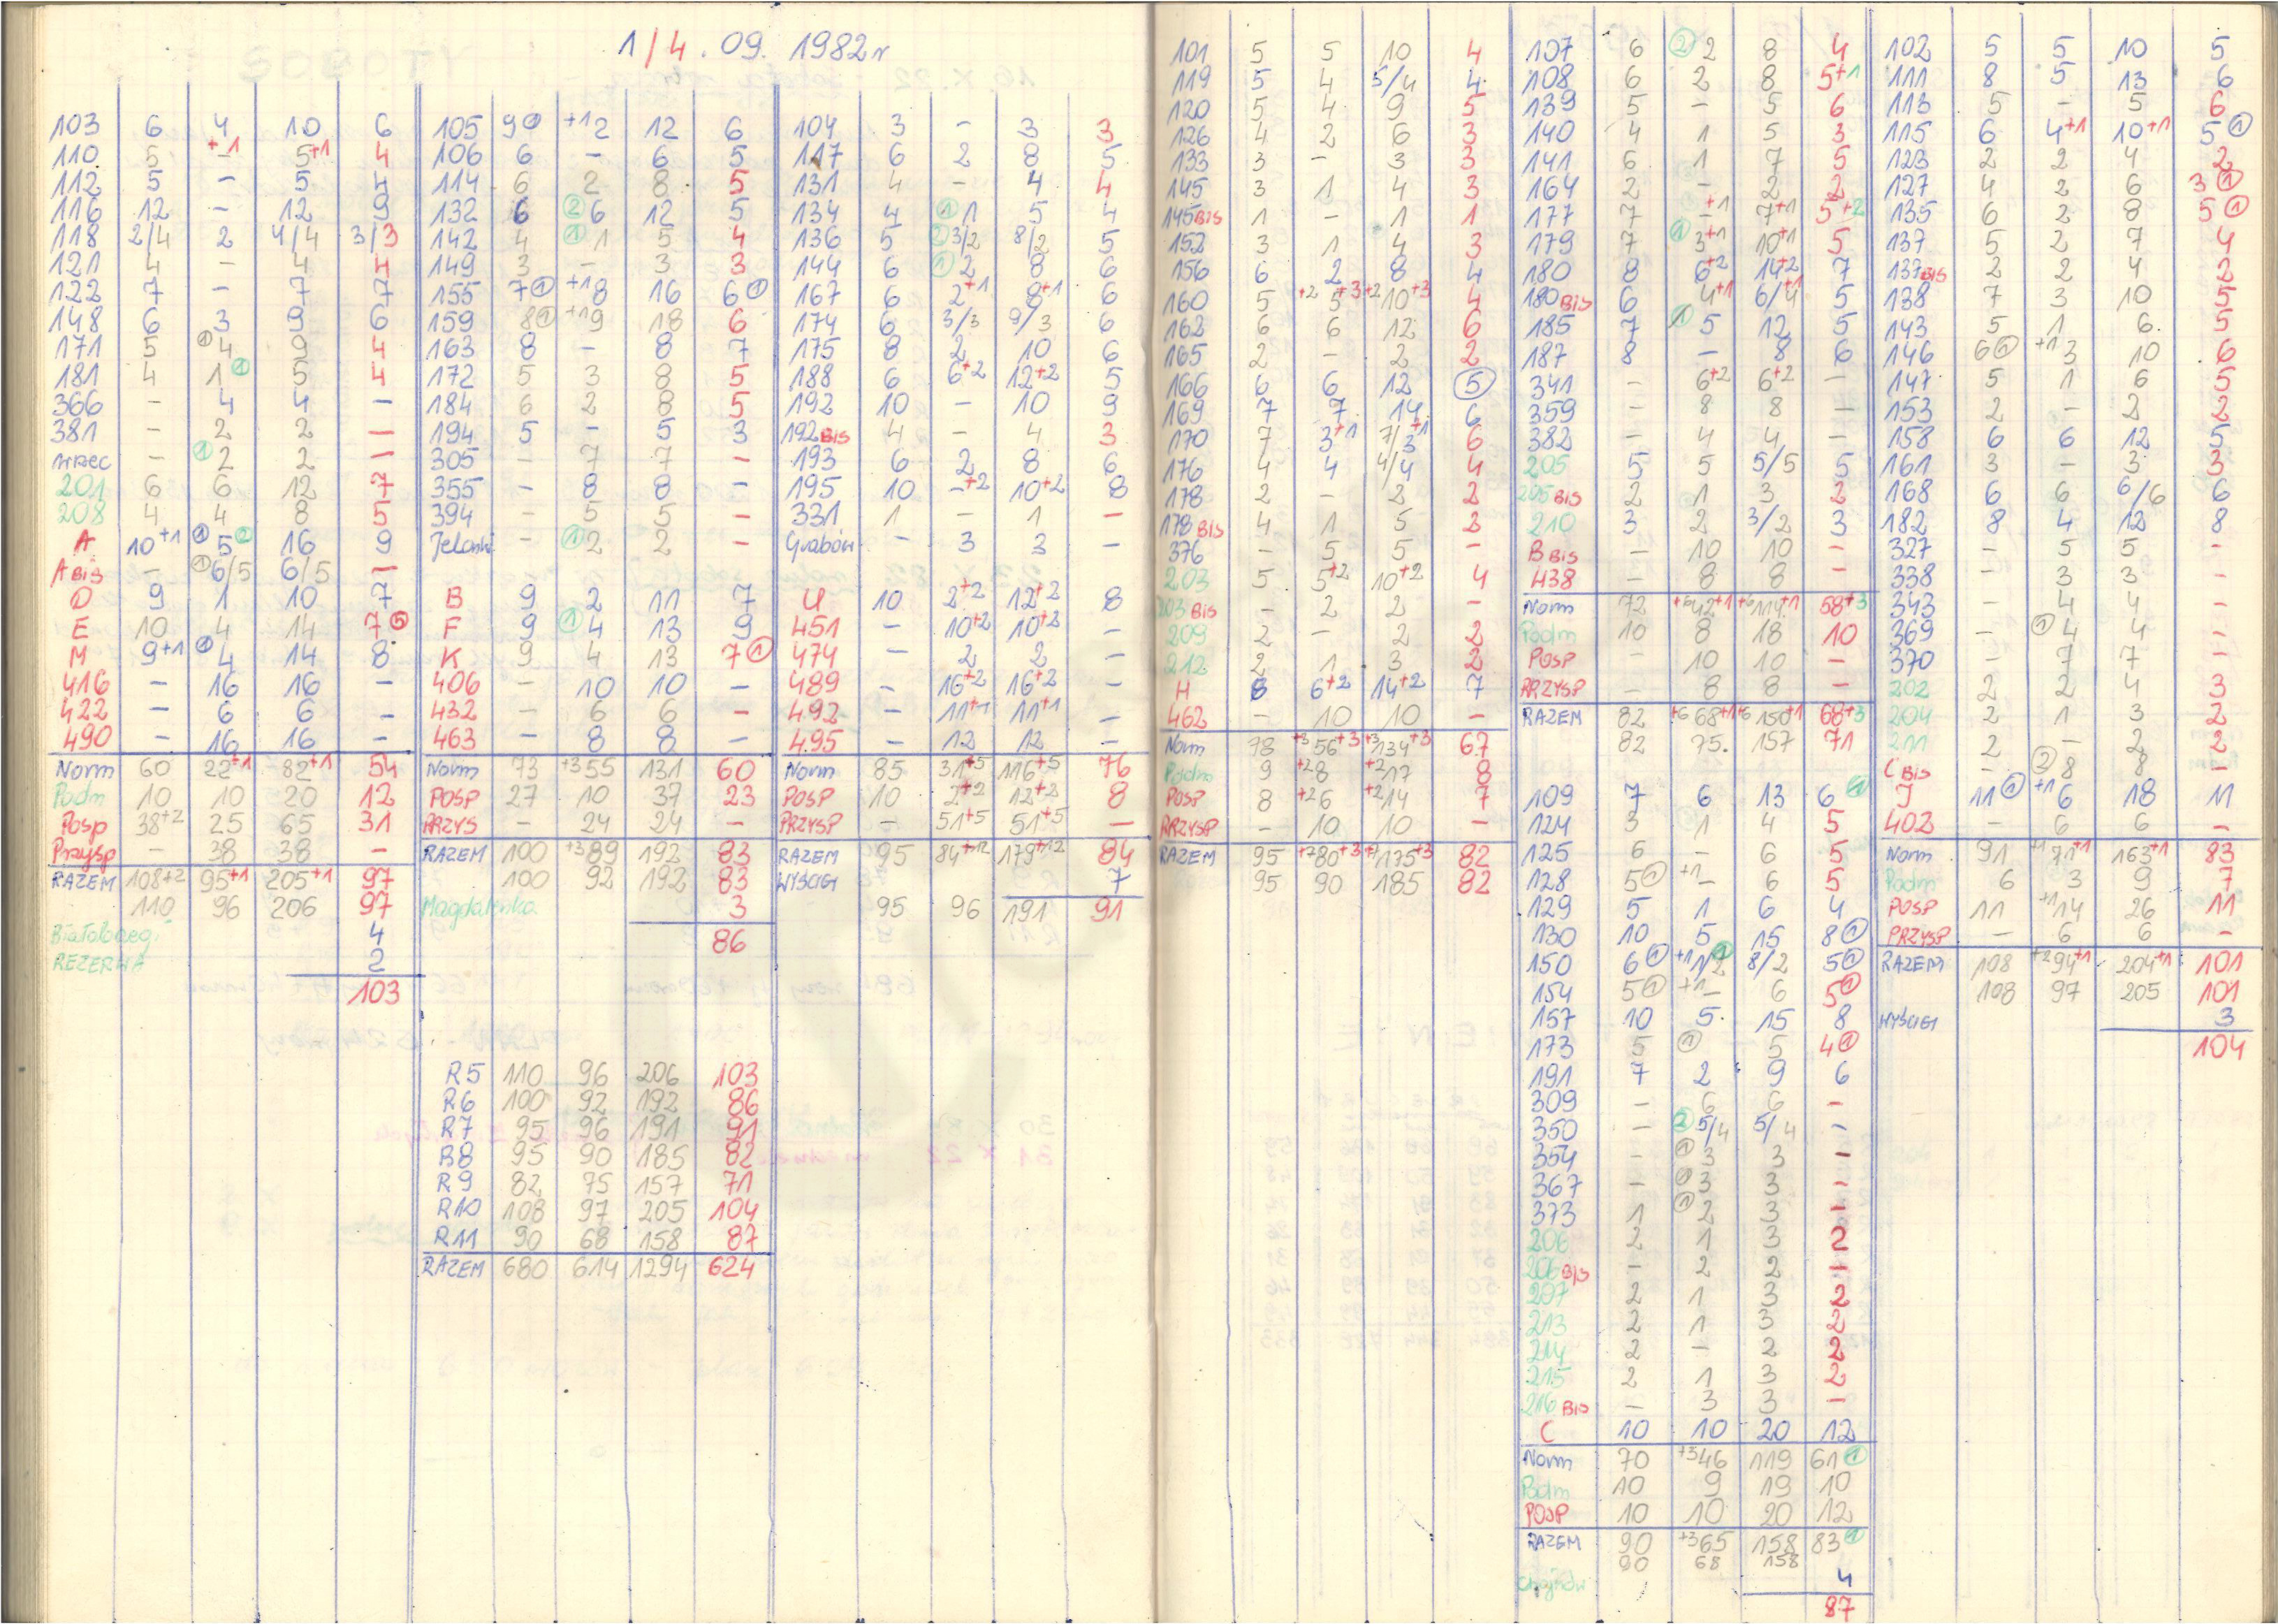 1/4.09.1982r
103 6 4 10 6
110 5 -+1 5+1 4
112 5 - 5 4
116 12 - 12 9
118 2/4 2 4/4 3/3
121 4 - 4 4
122 7 - 7 7
148 6 3 9 6
171 5 ①4 9 4
181 4 1① 5 4
366 - 4 4 -
381 - 2 2 -
- ①2 2 -
201 6 6 12 7
208 4 4 8 5
A 10+1 ①5② 16 9
A BIS - ①6/5 6/5 -
D 9 1 10 7
E 10 4 14 7
M 9+1 ①4 14 8
416 - 16 16 -
422 - 6 6 -
490 - 16 16 -
Norm 60 22+1 82+1 54
Podm 10 10 20 12
Posp 38+2 25 65 31
Przysp - 38 38 -
RAZEM 108+2 95+1 205+1 97
110 96 206 97
Białobrzegi 4
REZERWA 2
103
105 9① +12 12 6
106 6 - 6 5
114 6 2 8 5
132 6 ②6 12 5
142 4 ①1 5 4
149 3 - 3 3
155 7① +18 16 6①
159 8① +19 18 6
163 8 - 8 7
172 5 3 8 5
184 6 2 8 5
194 5 - 5 3
305 - 7 7 -
355 - 8 8 -
394 - 5 5 -
Jelonki - ①2 2 -
B 9 2 11 7
F 9 ①4 13 9
K 9 4 13 7①
406 - 10 10 -
432 - 6 6 -
463 - 8 8 -
Norm 73 +355 131 60
POSP 27 10 37 23
PRZYS - 24 24 -
RAZEM 100 +389 192 83
100 92 192 83
Magdalenka 3
86
R5 110 96 206 103
R6 100 92 192 86
R7 95 96 191 91
R8 95 90 185 82
R9 82 75 157 71
R10 108 97 205 104
R11 90 68 158 87
RAZEM 680 614 1294 624
104 3 - 3 3
117 6 2 8 5
131 4 - 4 4
134 4 ①1 5 4
136 5 ②3/2 8/2 5
144 6 ①2 8 6
167 6 2+1 8+1 6
174 6 3/3 9/3 6
175 8 2 10 6
188 6 6+2 12+2 5
192 10 - 10 9
192 BIS 4 - 4 3
193 6 2 8 6
195 10 -+2 10+2 8
331 1 - 1 -
Grabów - 3 3 -
U 10 2+2 12+2 8
451 - 10+2 10+2 -
474 - 2 2 -
489 - 16+2 16+2 -
492 - 11+1 11+1 -
495 - 12 12 -
Norm 85 31+5 116+5 76
POSP 10 2+2 12+2 8
PRZYSP - 51+5 51+5 -
RAZEM 95 84+12 179+12 84
WYŚCIGI 7
95 96 191 91
101 5 5 10 4
119 5 4 5/4 4
120 5 4 9 5
126 4 2 6 3
133 3 - 3 3
145 3 1 4 3
145 BIS 1 - 1 1
152 3 1 4 3
156 6 2 8 4
160 5 +25+3 +210+3 4
162 6 6 12 6
165 2 - 2 2
166 6 6 12 ⑤
169 7 7 14 6
170 7 3+1 7/3+1 6
176 4 4 4/4 4
178 2 - 2 2
178 BIS 4 1 5 2
376 - 5 5 -
203 5 5+2 10+2 4
203 BIS - 2 2 -
209 2 - 2 2
212 2 1 3 2
H 8 6+2 14+2 7
462 - 10 10 -
Norm 78 +356+3 +3134+3 67
Podm 9 +28 +217 8
POSP 8 +26 +214 7
PRZYSP - 10 10 -
RAZEM 95 +780+3 +7175+3 82
95 90 185 82
107 6 ②2 8 4
108 6 2 8 5+1
139 5 - 5 6
140 4 1 5 3
141 6 1 7 5
164 2 - 2 2
177 7 -+1 7+1 5+2
179 7 ①3+1 10+1 5
180 8 6+2 14+2 7
180 BIS 6 4+1 6/4 5
185 7 ①5 12 5
187 8 - 8 6
341 - 6+2 6+2 -
359 - 8 8 -
382 - 4 4 -
205 5 5 5/5 5
205 BIS 2 1 3 2
210 3 2 3/2 3
B BIS - 10 10 -
438 - 8 8 -
Norm 72 +642+1 +6114+1 58+3
Podm 10 8 18 10
POSP - 10 10 -
PRZYSP - 8 8 -
RAZEM 82 +668+1 +6150+1 68+3
82 75. 157 71
109 7 6 13 6①
124 3 1 4 5
125 6 - 6 5
128 5① +1- 6 5
129 5 1 6 4
130 10 5 15 8①
150 6① +11/2 8/2 5①
154 5① +1- 6 5①
157 10 5. 15 8
173 5 ① 5 4①
191 7 2 9 6
309 - 6 6 -
350 - ②5/4 5/4 -
354 - ①3 3 -
367 - ①3 3 -
373 1 ①2 3 -
206 2 1 3 2
206 BIS - 2 2 -
207 2 1 3 2
213 2 1 3 2
214 2 - 2 2
215 2 1 3 2
216 BIS - 3 3 -
C 10 10 20 12
Norm 70 +346 119 61①
Podm 10 9 19 10
POSP 10 10 20 12
RAZEM 90 +365 158 83①
90 68 158
Chojnów 4
87
102 5 5 10 5
111 8 5 13 6
113 5 - 5 6
115 6 4+1 10+1 5①
123 2 2 4 2
127 4 2 6 3①
135 6 2 8 5①
137 5 2 7 4
137 BIS 2 2 4 2
138 7 3 10 5
143 5 1 6. 5
146 6① +13 10 6
147 5 1 6 5
153 2 - 2 2
158 6 6 12 5
161 3 - 3 3
168 6 6 6/6 6
182 8 4 12 8
327 - 5 5 -
338 - 3 3 -
343 - 4 4 -
369 - ①4 4 -
370 - 7 7 -
202 2 2 4 3
204 2 1 3 2
211 2 - 2 2
C BIS - ②8 8 -
J 11① +16 18 11
402 - 6 6 -
Norm 91 +171+1 163+1 83
Podm 6 3 9 7
POSP 11 +114 26 11
PRZYSP - 6 6 -
RAZEM 108 +294+1 204+1 101
108 97 205 101
WYŚCIGI 3
104